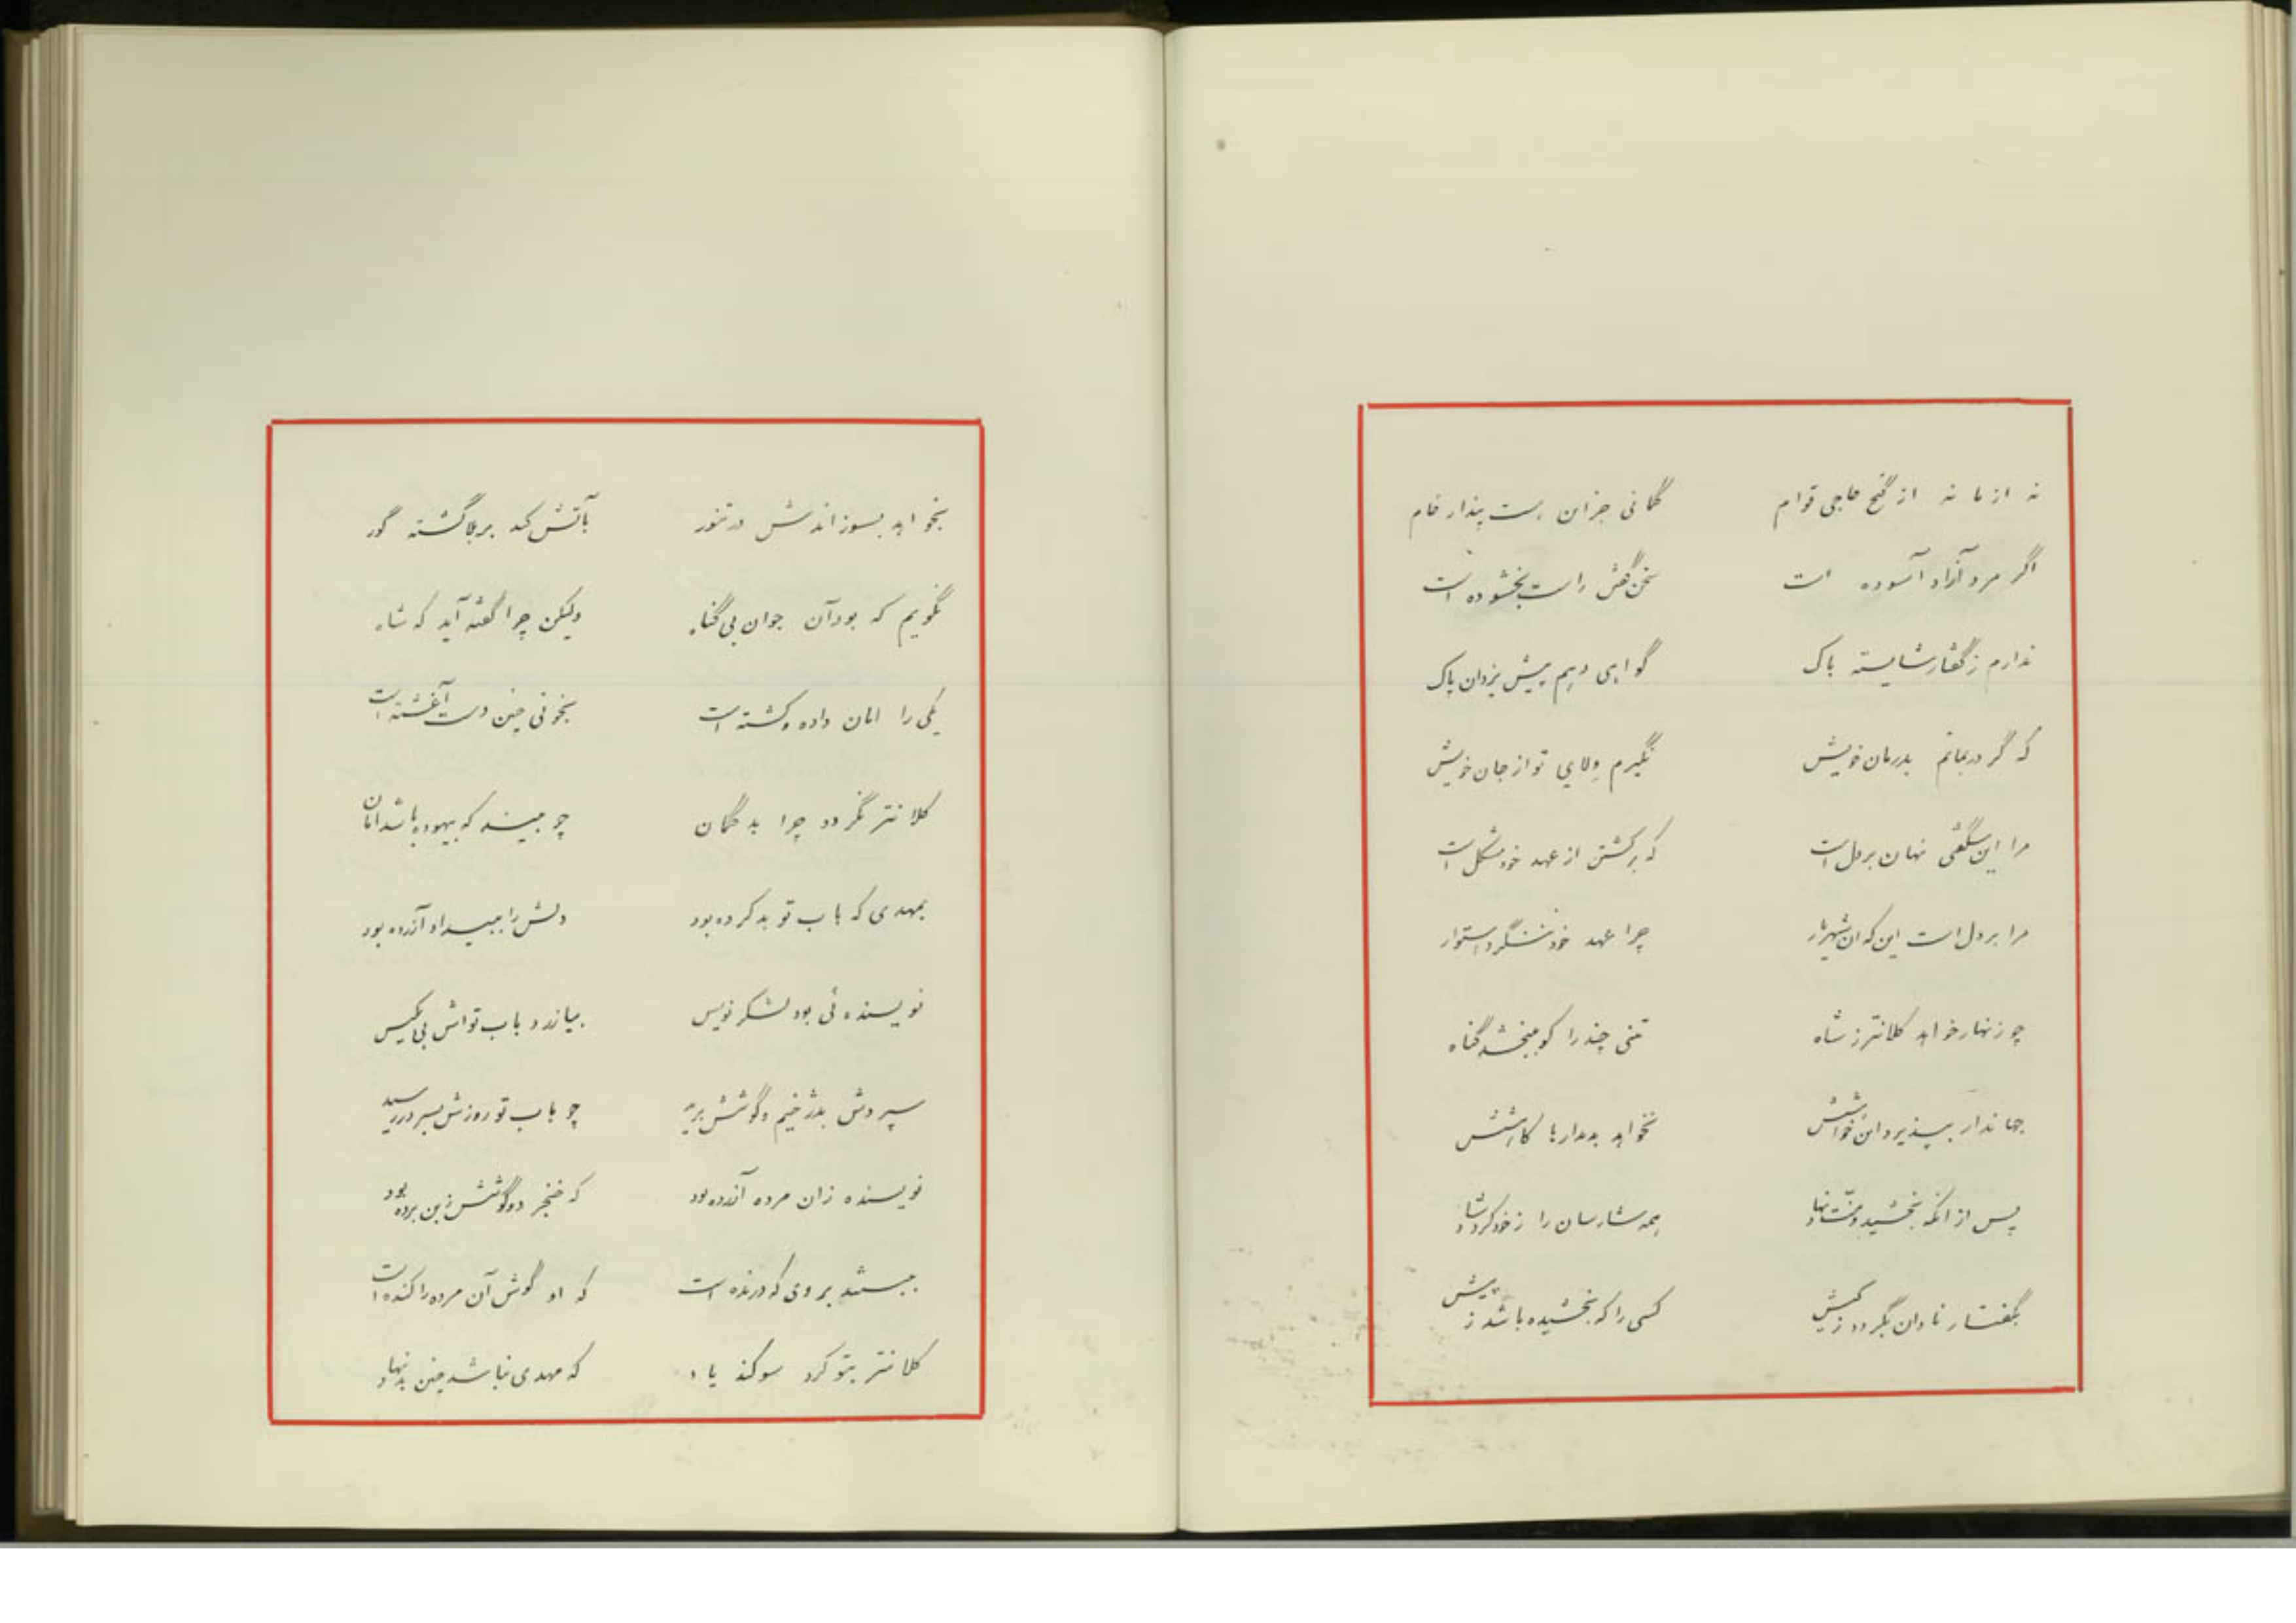 نه از ما نه از گنج حاجی قوام گمانی جزان است پندار خام
اگر مرد آزاد آسوده است سخن گفتن راست بخشوده است
ندارم ز گفتار شایسته باک گواهی دهم پیش یزدان پاک
که گر درنمانم بدرمان خویش نگیرم ولای تو از جان خویش
مرا این شگفتی نهان بر دل است که برگشتن از عهد خود مشکل است
مرا بر دل است این که آن شهریار چرا عهد خودشنگرد استوار
چو زنهار خواهد کلانتر ز شاه تنی چند را کو ببخشد گناه
جهاندار بپذیرد این خواهشش نخواهد بدیدارها کاهشش
پس از آنکه بخشید و منت نهاد همه شارسان را ز خود کرد شاد
بگفتار نادان بگردد ز کیش کسی را که بخشیده باشد ز پیش
بخواهد بسوزاندش در تنور بآتش کند بر گشته گور
نگویم که بود آن جوان بی گناه ولیکن چرا گفته آید که شاه
یکی را امان داده و کشته است بخونی چنین دست آغشته است
کلانتر نگردد چرا بد گمان چو بیند که بیهوده باشد امان
بمهدی که باب تو بد کرده بود دلش را ببیداد آزرده بود
نویسنده ئی بود لشکر نویس بیازرد باب تواش بی مکیس
سپردش بدژخیم و گوشش برید چو باب تو روزش بسر در رسید
نویسنده زان مرده آزرده بود که خنجر دو گوشش ز بن برده بود
ببستند بروی که درنده است که او گوش آن مرده را کنده است
کلانتر بتو کرد سوگند یاد که مهدی نباشد چنین بدنهاد